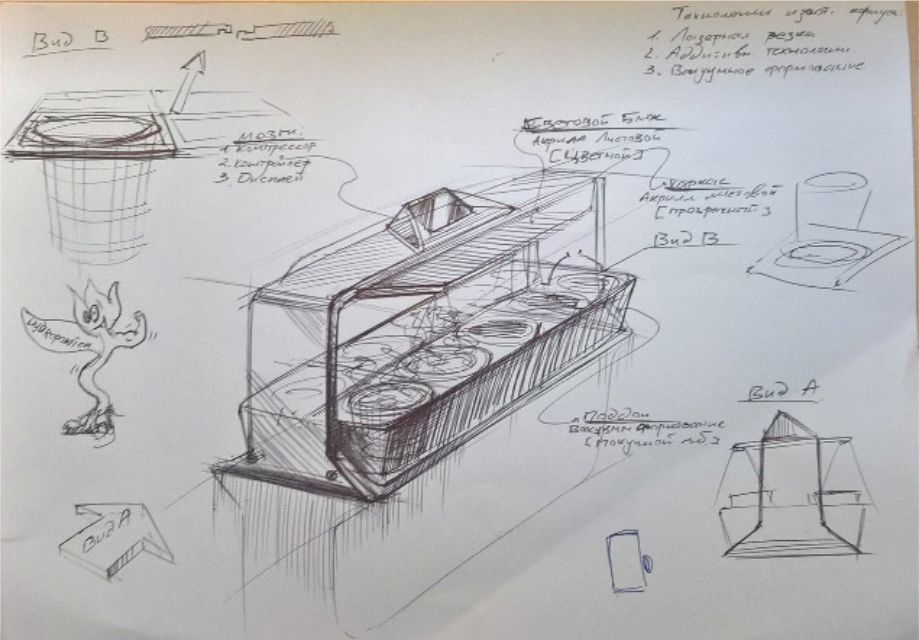 Технологии изгот. корпуса:
1. Лазерная резка
2. Аддитивн. технологии.
3. Вакуумное формование
Вид В
Мозги:
1. Компрессор
2. Контроллер
3. Дисплей
Световой Блок
Акрил Листовой
[Цветной]
Каркас
Акрил листовой
[прозрачный]
Вид В
Поддон
Вакуумн формование
Вид А
Вид А